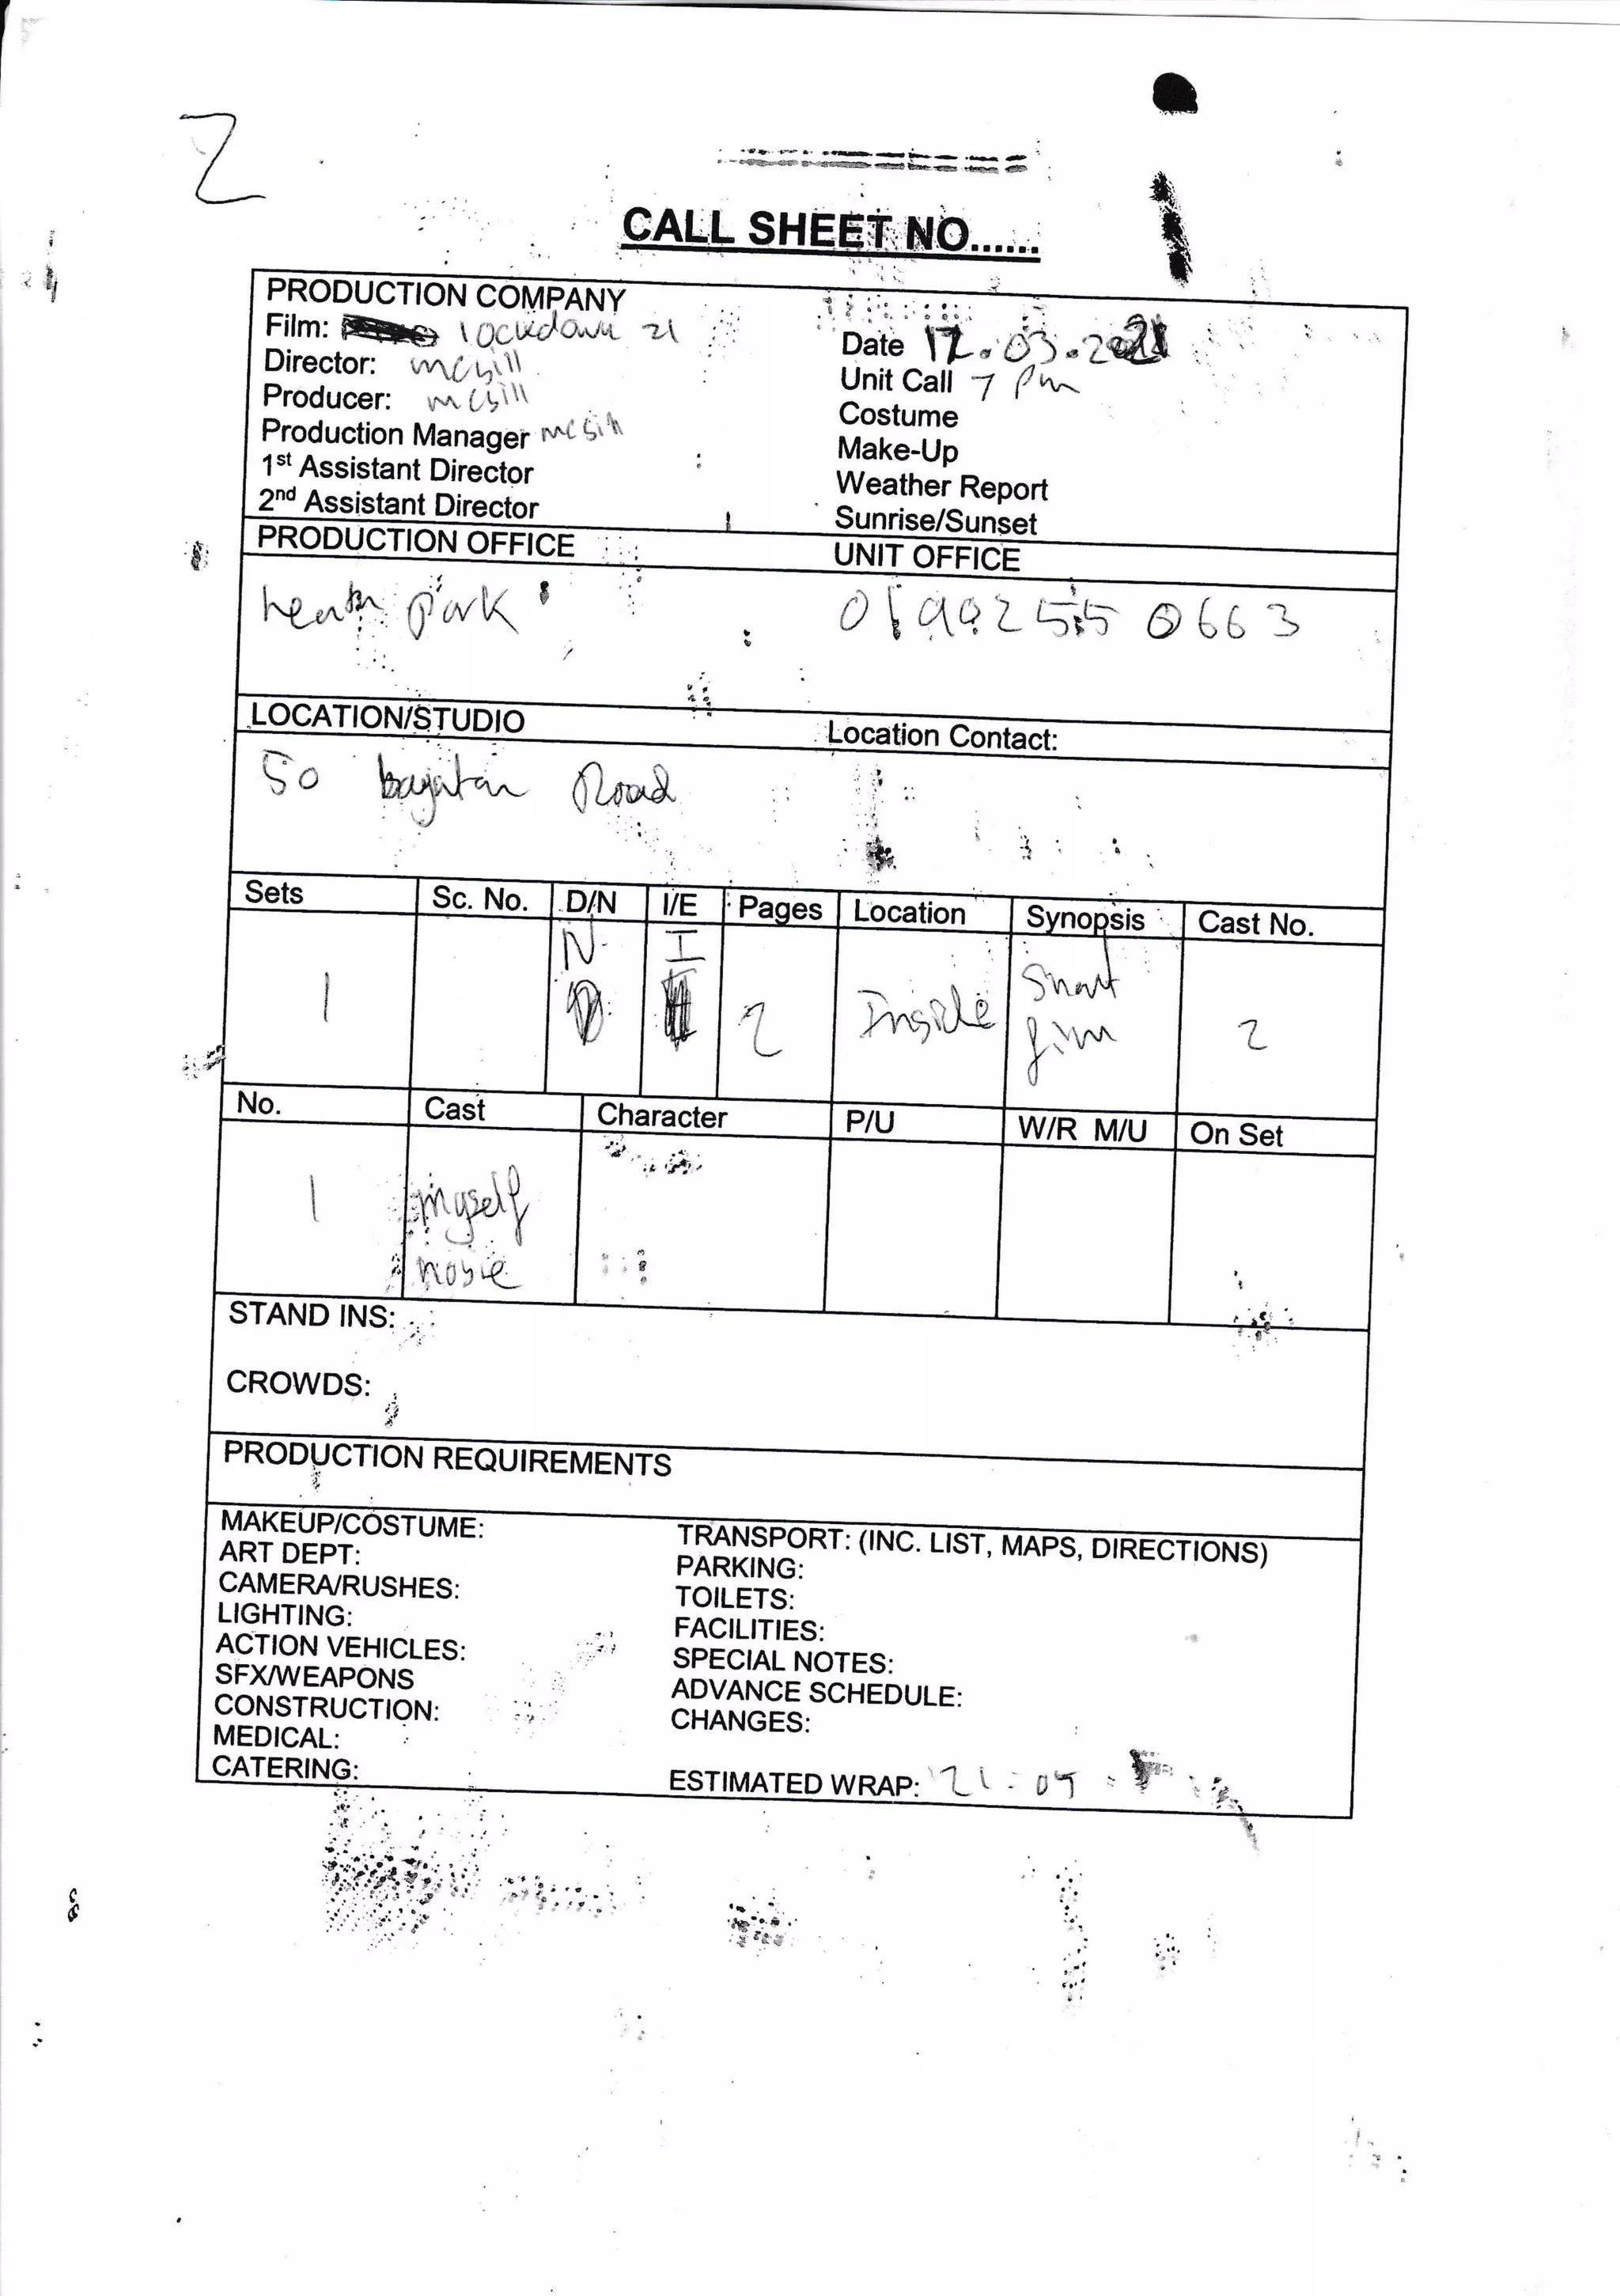 2
CALL SHEET NO......
PRODUCTION COMPANY
Film: lockdown 21
Date 12.03.2021
Director: mcgill
Unit Call 7 Pm
Producer: mcgill
Costume
Production Manager mcgill
Make-Up
1st Assistant Director
Weather Report
2nd Assistant Director
Sunrise/Sunset
PRODUCTION OFFICE UNIT OFFICE
heath park
LOCATION/STUDIO Location Contact:
50 Road
Sets Sc. No. D/N I/E Pages Location Synopsis Cast No.
1 N I 2 Inside Short 2
D film
No. Cast Character P/U W/R M/U On Set
1 myself
STAND INS:
CROWDS:
PRODUCTION REQUIREMENTS
MAKEUP/COSTUME: TRANSPORT: (INC. LIST, MAPS, DIRECTIONS)
ART DEPT: PARKING:
CAMERA/RUSHES: TOILETS:
LIGHTING: FACILITIES:
ACTION VEHICLES: SPECIAL NOTES:
SFX/WEAPONS ADVANCE SCHEDULE:
CONSTRUCTION: CHANGES:
MEDICAL:
CATERING: ESTIMATED WRAP: 21:04